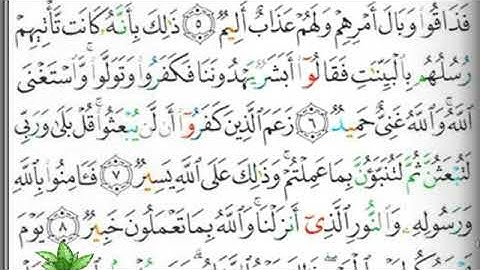 فَذَاقُوا۟ وَبَالَ أَمْرِهِمْ وَلَهُمْ عَذَابٌ أَلِيمٌ ٥ ذَٰلِكَ بِأَنَّهُۥ كَانَت تَّأْتِيهِمْ
رُسُلُهُم بِٱلْبَيِّنَٰتِ فَقَالُوٓا۟ أَبَشَرٌ يَهْدُونَنَا فَكَفَرُوا۟ وَتَوَلَّوا۟ ۚ وَّٱسْتَغْنَى
ٱللَّهُ ۚ وَٱللَّهُ غَنِىٌّ حَمِيدٌ ٦ زَعَمَ ٱلَّذِينَ كَفَرُوٓا۟ أَن لَّن يُبْعَثُوا۟ ۚ قُلْ بَلَىٰ وَرَبِّى
لَتُبْعَثُنَّ ثُمَّ لَتُنَبَّؤُنَّ بِمَا عَمِلْتُمْ ۚ وَذَٰلِكَ عَلَى ٱللَّهِ يَسِيرٌ ٧ فَـَٔامِنُوا۟ بِٱللَّهِ
وَرَسُولِهِۦ وَٱلنُّورِ ٱلَّذِىٓ أَنزَلْنَا ۚ وَٱللَّهُ بِمَا تَعْمَلُونَ خَبِيرٌ ٨ يَوْمَ